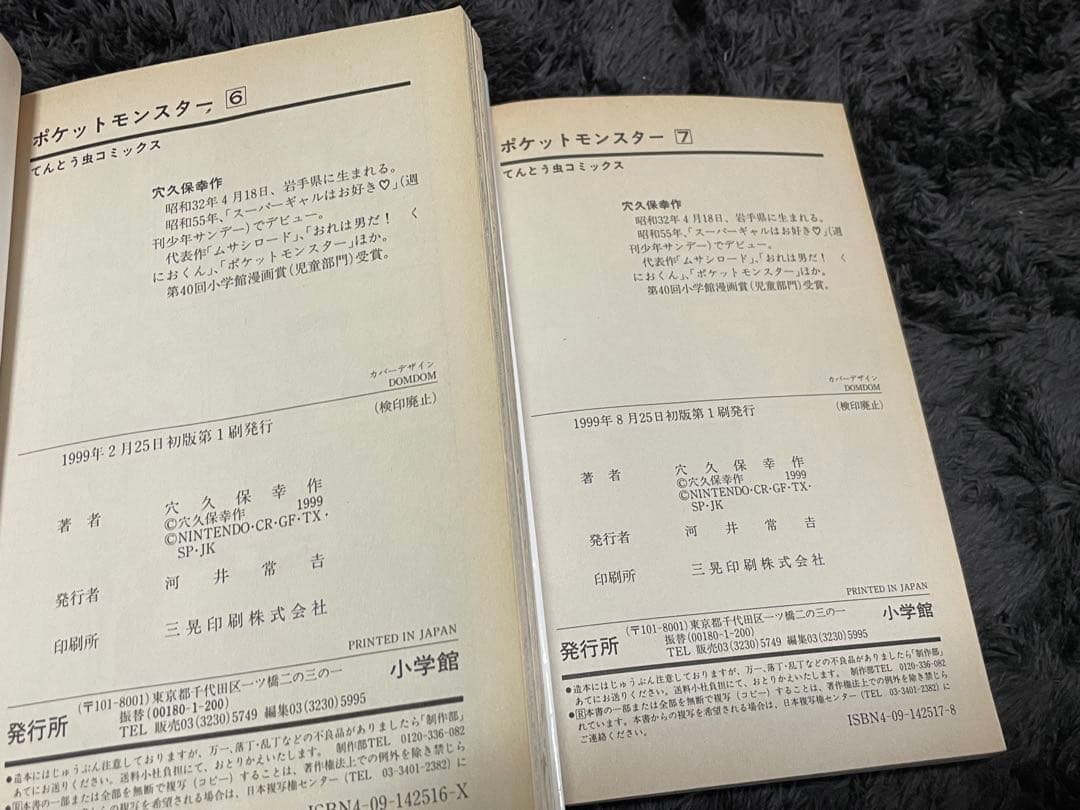 ポケットモンスター 6
てんとう虫コミックス
穴久保幸作
昭和32年4月18日、岩手県に生まれる。
昭和55年、「スーパーギャルはお好き♡」(週
刊少年サンデー)でデビュー。
代表作「ムサシロード」、「おれは男だ! く
におくん」、「ポケットモンスター」ほか。
第40回小学館漫画賞(児童部門)受賞。
カバーデザイン
DOMDOM
(検印廃止)
1999年2月25日初版第1刷発行
著者 穴久保幸作
©穴久保幸作 1999
©NINTENDO・CR・GF・TX・
SP・JK
発行者 河井常吉
印刷所 三晃印刷株式会社
PRINTED IN JAPAN
(〒101-8001)東京都千代田区一ツ橋二の三の一 小学館
発行所 振替(00180-1-200)
TEL 販売03(3230)5749 編集03(3230)5995
●造本にはじゅうぶん注意しておりますが、万一、落丁・乱丁などの不良品がありましたら「制作部」
あてにお送りください。送料小社負担にて、おとりかえいたします。 制作部TEL 0120-336-082
Ⓡ本書の一部または全部を無断で複写(コピー)することは、著作権法上での例外を除き禁じら
れています。本書からの複写を希望される場合は、日本複写権センター(TEL 03-3401-2382)に
ISBN4-09-142516-X
ポケットモンスター 7
てんとう虫コミックス
穴久保幸作
昭和32年4月18日、岩手県に生まれる。
昭和55年、「スーパーギャルはお好き♡」(週
刊少年サンデー)でデビュー。
代表作「ムサシロード」、「おれは男だ! く
におくん」、「ポケットモンスター」ほか。
第40回小学館漫画賞(児童部門)受賞。
カバーデザイン
DOMDOM
(検印廃止)
1999年8月25日初版第1刷発行
著者 穴久保幸作
©穴久保幸作 1999
©NINTENDO・CR・GF・TX・
SP・JK
発行者 河井常吉
印刷所 三晃印刷株式会社
PRINTED IN JAPAN
(〒101-8001)東京都千代田区一ツ橋二の三の一 小学館
発行所 振替(00180-1-200)
TEL 販売03(3230)5749 編集03(3230)5995
●造本にはじゅうぶん注意しておりますが、万一、落丁・乱丁などの不良品がありましたら「制作部」
あてにお送りください。送料小社負担にて、おとりかえいたします。 制作部TEL 0120-336-082
●Ⓡ本書の一部または全部を無断で複写(コピー)することは、著作権法上での例外を除き禁じら
れています。本書からの複写を希望される場合は、日本複写権センター(TEL 03-3401-2382)に
ご連絡ください。
ISBN4-09-142517-8